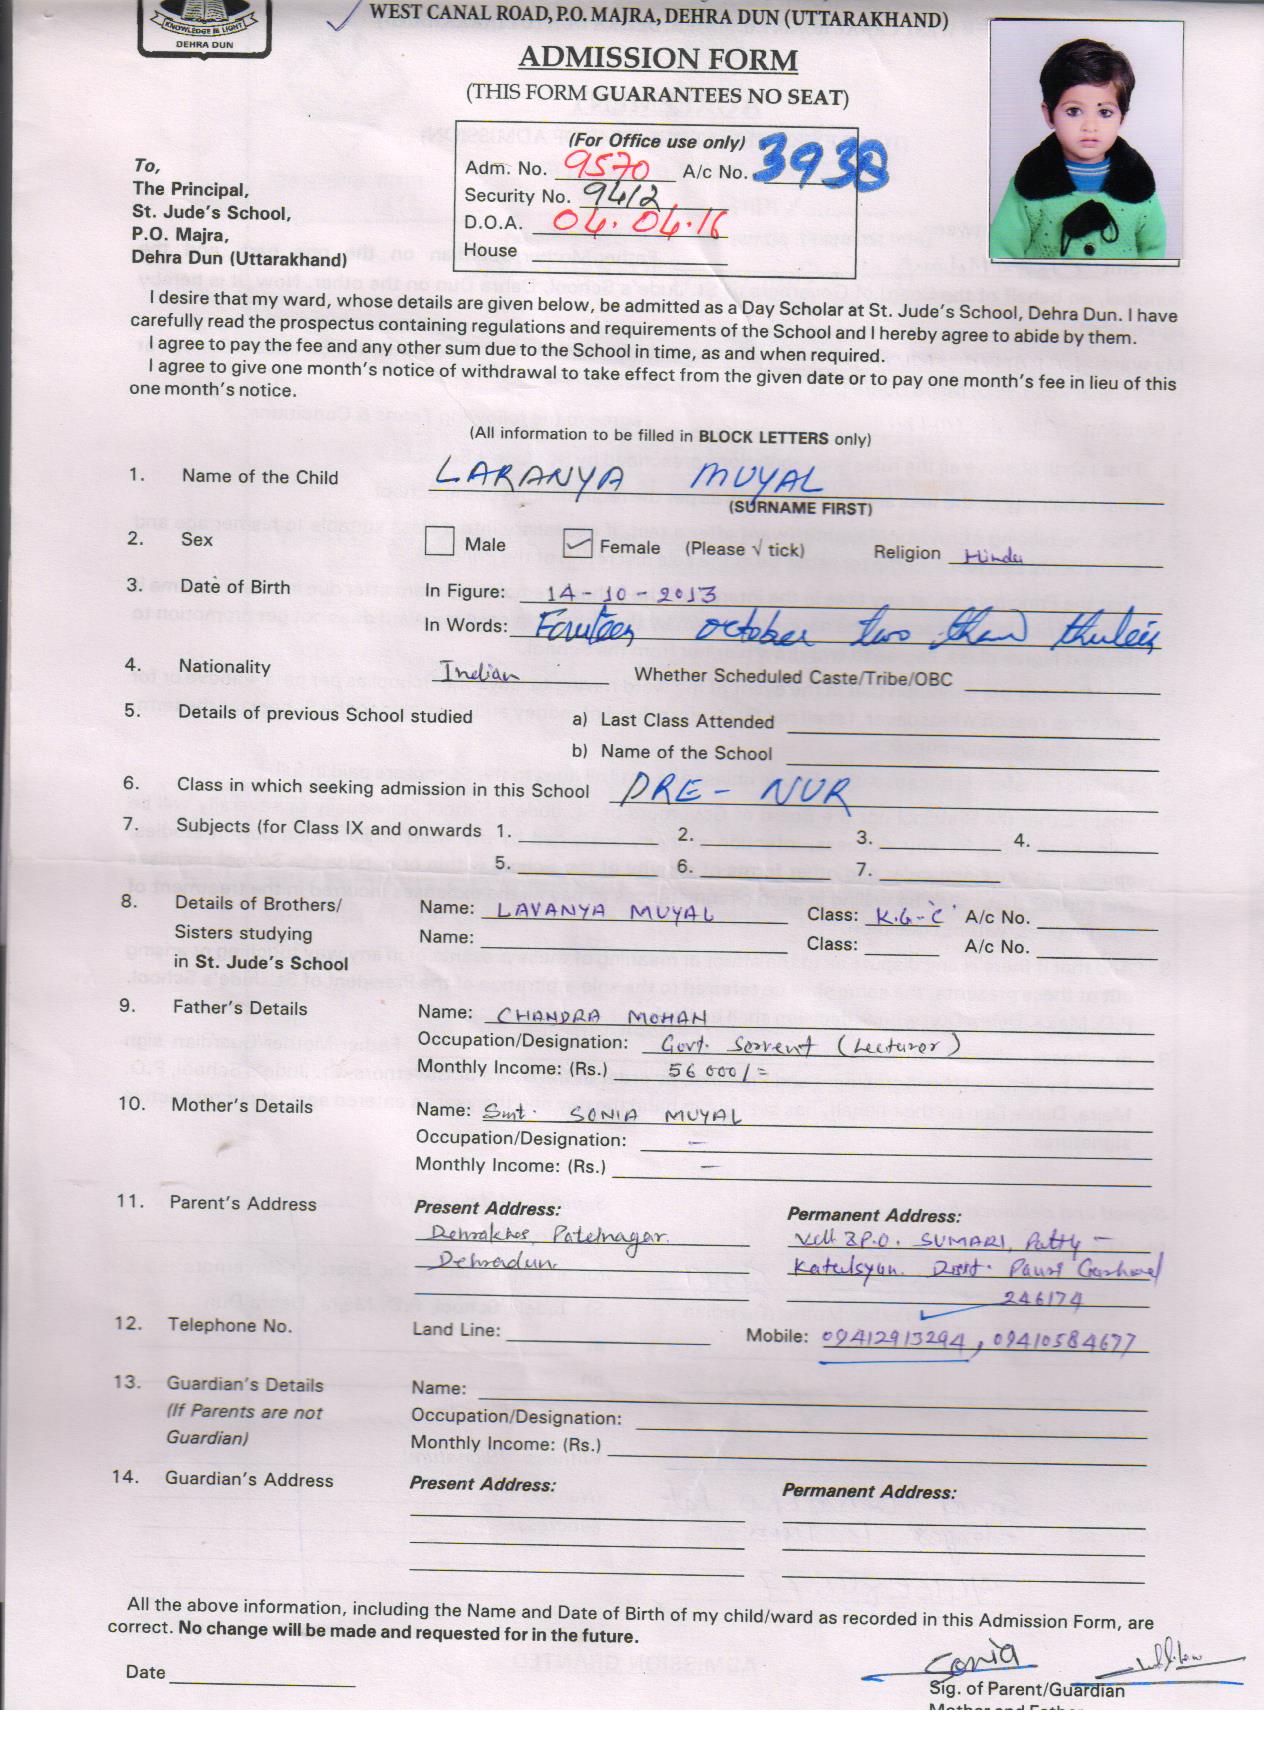 KNOWLEDGE IS LIGHT
DEHRA DUN
WEST CANAL ROAD, P.O. MAJRA, DEHRA DUN (UTTARAKHAND)
ADMISSION FORM
(THIS FORM GUARANTEES NO SEAT)
(For Office use only)
Adm. No. 9570 A/c No. 3938
Security No. 9412
D.O.A. 04.04.16
House
To,
The Principal,
St. Jude's School,
P.O. Majra,
Dehra Dun (Uttarakhand)
I desire that my ward, whose details are given below, be admitted as a Day Scholar at St. Jude's School, Dehra Dun. I have
carefully read the prospectus containing regulations and requirements of the School and I hereby agree to abide by them.
I agree to pay the fee and any other sum due to the School in time, as and when required.
I agree to give one month's notice of withdrawal to take effect from the given date or to pay one month's fee in lieu of this
one month's notice.
(All information to be filled in BLOCK LETTERS only)
1. Name of the Child LARANYA MUYAL
(SURNAME FIRST)
2. Sex Male Female (Please √ tick) Religion Hindu
3. Date of Birth In Figure: 14-10-2013
In Words: october two
4. Nationality Indian Whether Scheduled Caste/Tribe/OBC
5. Details of previous School studied a) Last Class Attended
b) Name of the School
6. Class in which seeking admission in this School PRE - NUR
7. Subjects (for Class IX and onwards 1. 2. 3. 4.
5. 6. 7.
8. Details of Brothers/ Name: LAVANYA MUYAL Class: K.G-'C' A/c No.
Sisters studying Name: Class: A/c No.
in St. Jude's School
9. Father's Details Name: CHANDRA MOHAN
Occupation/Designation: Govt. Servent (Lecturer)
Monthly Income: (Rs.) 56000/=
10. Mother's Details Name: Smt. SONIA MUYAL
Occupation/Designation: -
Monthly Income: (Rs.) -
11. Parent's Address Present Address: Permanent Address:
Dehrakhas, Patelnagar. Vill & P.O. SUMARI, Patty -
Dehradun. Katulsyun. Distt. Pauri Garhwal
246174
12. Telephone No. Land Line: Mobile: 09412913294, 09410584677
13. Guardian's Details Name:
(If Parents are not Occupation/Designation:
Guardian) Monthly Income: (Rs.)
14. Guardian's Address Present Address: Permanent Address:
All the above information, including the Name and Date of Birth of my child/ward as recorded in this Admission Form, are
correct. No change will be made and requested for in the future.
Sonia
Date
Sig. of Parent/Guardian
Mother and Father